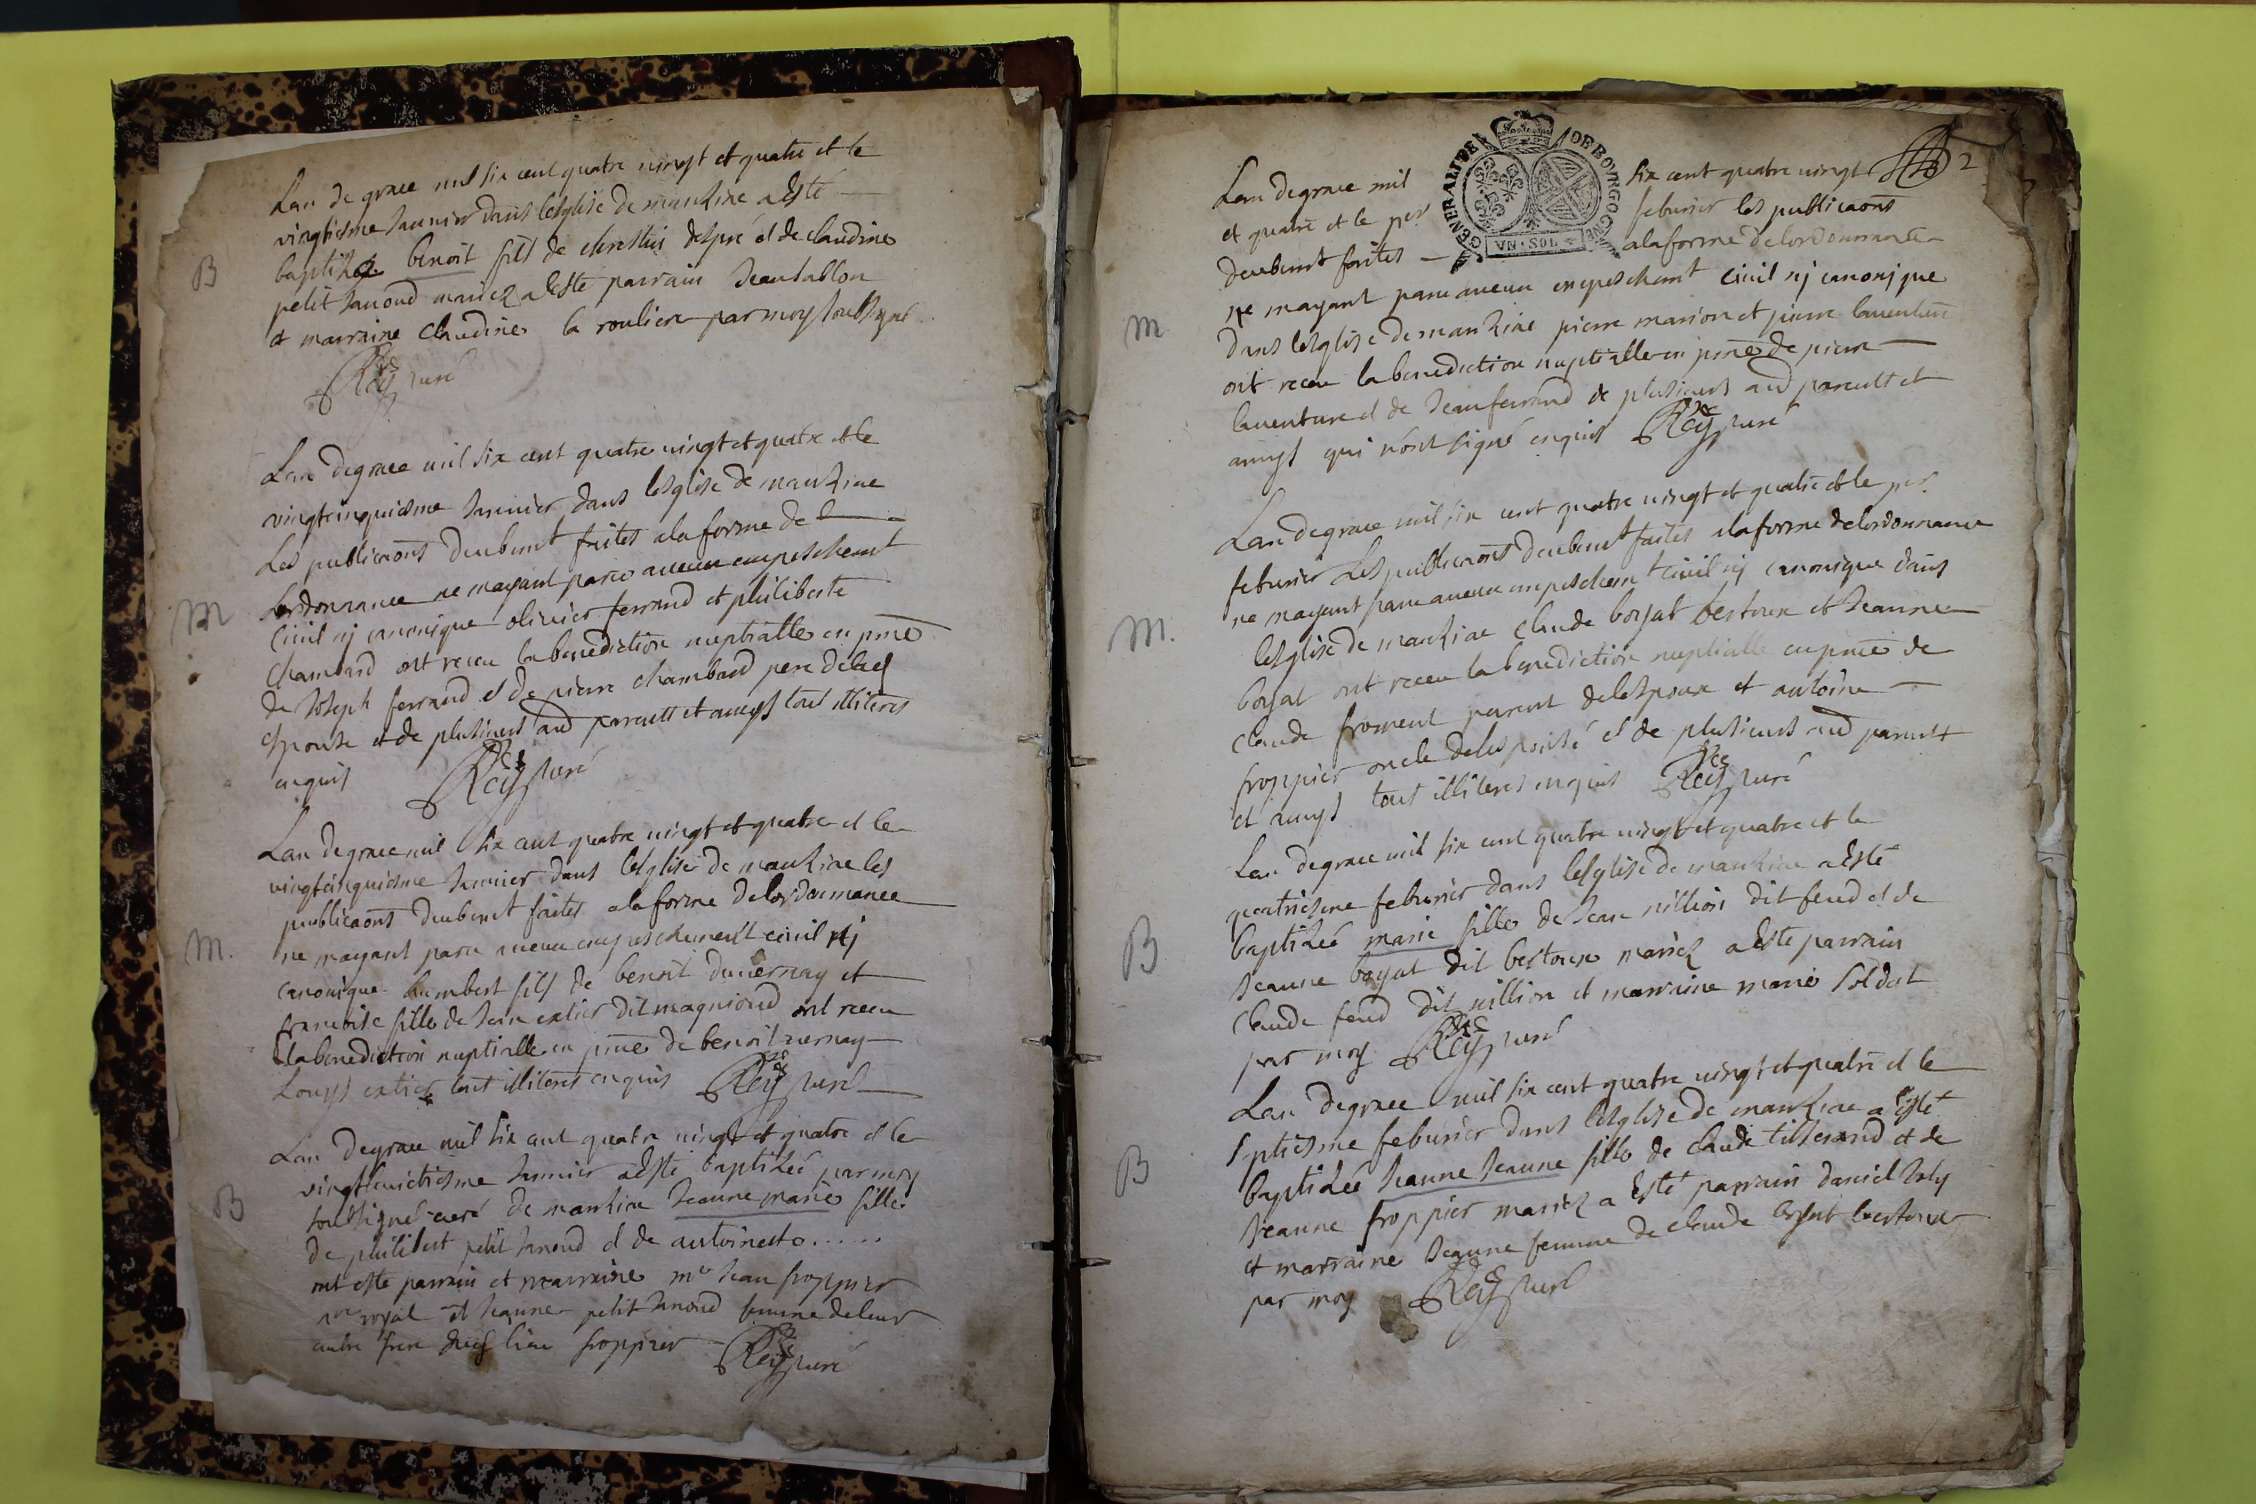 Lan de grace mil six cent quatre vingt et quatre et le
vingtiesme Janvier dans lesglise de manziae a esté
B baptizé benoit fils de despré et de claudine
petit Janoud mariez a esté parrain Jean tablon
et marraine claudine la rouliere par moy soubsigné
Rey curé
Lan de grace mil six cent quatre vingt et quatre et le
vingtcinquiesme Janvier dans lesglise de manziae
Les publicaons deubemt faites a la forme de
M Lordonnance ne mayant paru aucun empeschemt
Civil nj canonique olivier ferrand et philiberte
Chambard ont receu la benediction nuptialle en pnce
de Joseph ferrand et de pierre chambard pere de lad
espouse et de plusieurs aud parentt et amys tous illiteres
enquis Rey curé
Lan de grace mil six cent quatre vingt et quatre et le
vingtcinquiesme Janvier dans lesglise de manziae les
publicaons deubemt faites a la forme de lordonnance
M. ne mayant paru aucun empeschement civil nj
canonique humbert fils de benoit duvernay et
francoise fille de Jean extier dit magnioud ont receu
La benediction nuptialle en pnce de benoit vernay
Louys extier tout illiteres enquis Rey curé
Lan de grace mil six cent quatre vingt et quatre et le
vingthuictiesme Janvier a esté baptizée par moy
B soubsigné curé de manziae Jeanne marie fille
de philibert petit Janoud et de antoinette . . . . .
ont esté parrain et marraine mre Jean froppier
nre royal et Jeanne petit Janoud femme de leur
autre frere froppier Rey curé
GENERALITE DE BOVRGOGNE
VN · SOL
2
Lan de grace mil six cent quatre vingt
et quatre et le per feburier les publicaons
deubemt faites a la forme de lordonnance
M ne mayant paru aucun empeschemt civil nj canonique
dans lesglise de manziae pierre marion et pierre laventure
ont receu la benediction nuptialle en pnce de pierre
laventure et de Jean ferrand de plusieurs aud parentt et
amys qui nont signé enquis Rey curé
Lan de grace mil six cent quatre vingt et quatre et le per
feburier Les publicaons deubemt faites a la forme de lordonnance
ne mayant paru aucun empeschemt civil nj canonique dans
M. lesglise de manziae Claude boyat bertoux et Jeanne
boyat ont receu la benediction nuptialle en pnce de
Claude froment parent de lespoux et antoine
froppier oncle de lespouse et de plusieurs aud parentt
et amys tous illiteres enquis Rey curé
Lan de grace mil six cent quatre vingt et quatre et le
quatriesme feburier dans lesglise de manziae a esté
B baptizée marie fille de Jean million dit feud et de
Jeanne boyat dit bertoux mariez a esté parrain
Claude feud dit million et marraine marie soldat
par moy Rey curé
Lan de grace mil six cent quatre vingt et quatre et le
septiesme feburier dans lesglise de manziae a esté
B baptizée Jeanne Jeanne fille de claude tisserand et de
Jeanne froppier mariez a esté parrain daniel Joly
et marraine Jeanne femme de claude boyat bertoux
par moy Rey curé